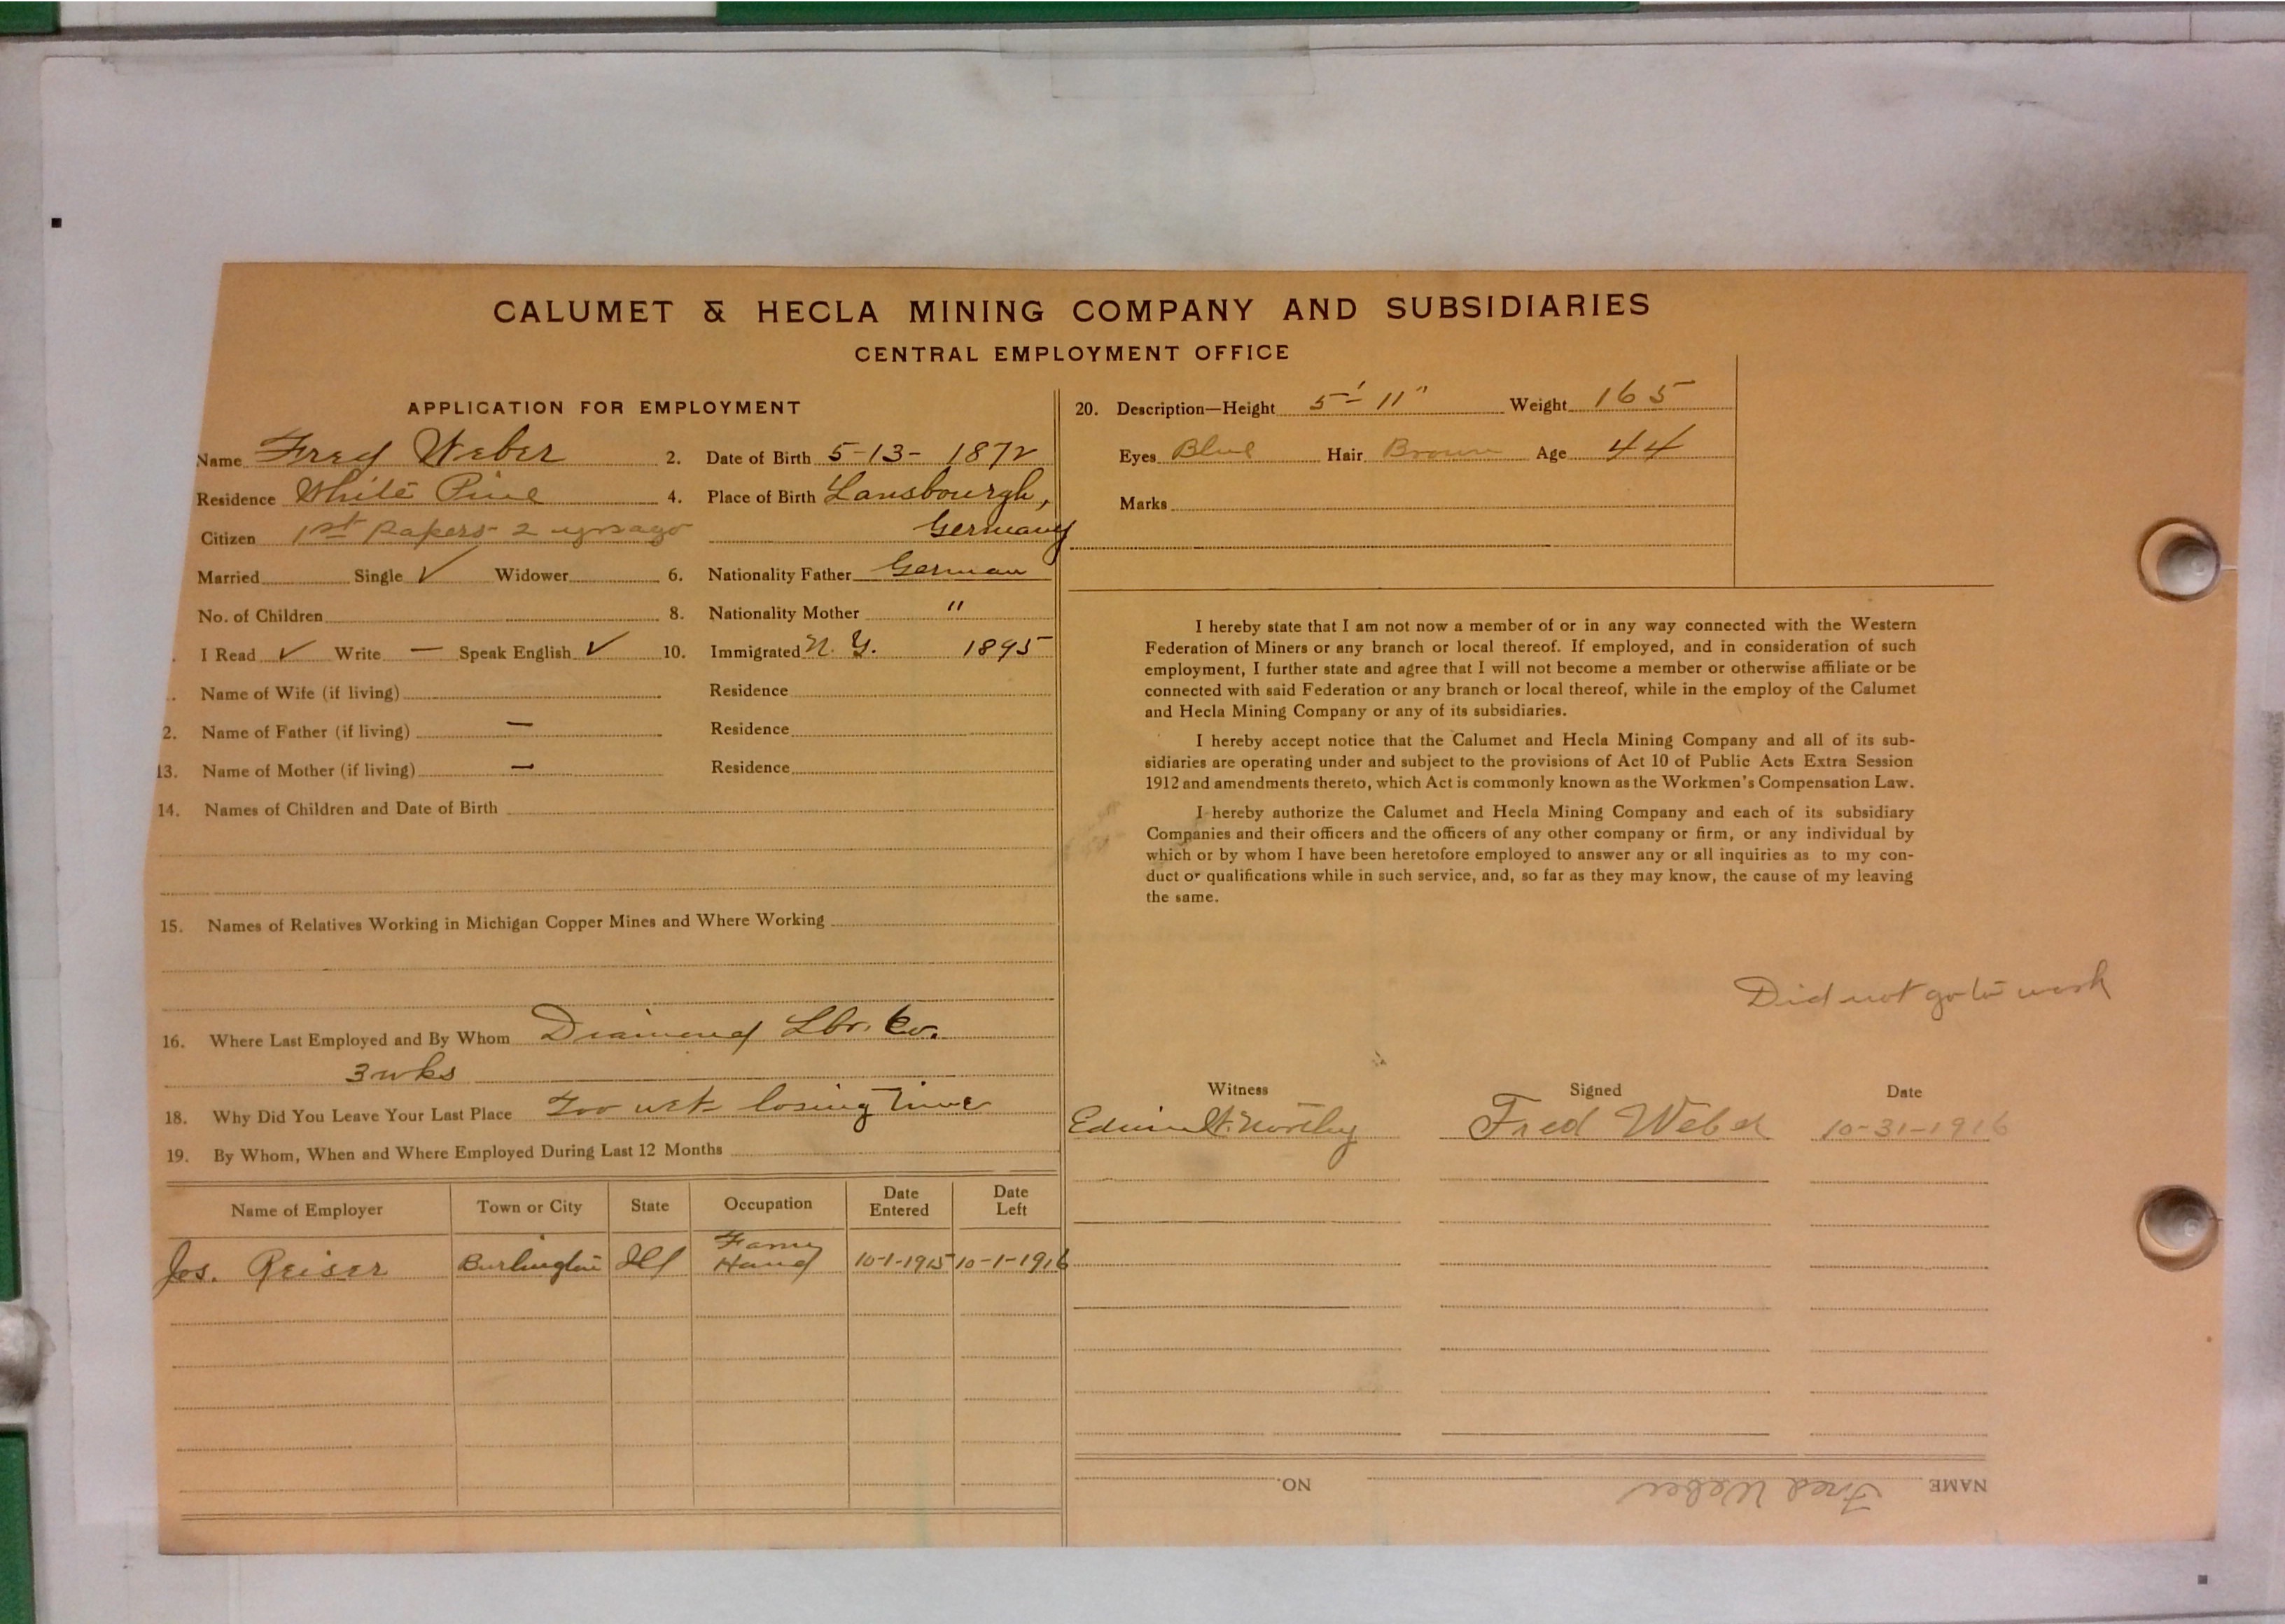 CALUMET & HECLA MINING COMPANY AND SUBSIDIARIES
CENTRAL EMPLOYMENT OFFICE
APPLICATION FOR EMPLOYMENT
Name Fred Weber 2. Date of Birth 5-13-1872
Residence White Pine 4. Place of Birth Lansbourgh,
Citizen 1st Papers 2 yrs ago Germany
Married Single ✓ Widower 6. Nationality Father German
No. of Children 8. Nationality Mother "
I Read ✓ Write — Speak English ✓ 10. Immigrated N. Y. 1895
Name of Wife (if living) Residence
2. Name of Father (if living) — Residence
13. Name of Mother (if living) — Residence
14. Names of Children and Date of Birth
15. Names of Relatives Working in Michigan Copper Mines and Where Working
16. Where Last Employed and By Whom Diamond Lbr. Co.
3 wks
18. Why Did You Leave Your Last Place Too wet losing time
19. By Whom, When and Where Employed During Last 12 Months
Name of Employer Town or City State Occupation Date Entered Date Left
Jos. Reiser Burlington Ill Farm Hand 10-1-1915 10-1-1916
20. Description—Height 5'-11" Weight 165
Eyes Blue Hair Brown Age 44
Marks
I hereby state that I am not now a member of or in any way connected with the Western
Federation of Miners or any branch or local thereof. If employed, and in consideration of such
employment, I further state and agree that I will not become a member or otherwise affiliate or be
connected with said Federation or any branch or local thereof, while in the employ of the Calumet
and Hecla Mining Company or any of its subsidiaries.
I hereby accept notice that the Calumet and Hecla Mining Company and all of its sub-
sidiaries are operating under and subject to the provisions of Act 10 of Public Acts Extra Session
1912 and amendments thereto, which Act is commonly known as the Workmen's Compensation Law.
I hereby authorize the Calumet and Hecla Mining Company and each of its subsidiary
Companies and their officers and the officers of any other company or firm, or any individual by
which or by whom I have been heretofore employed to answer any or all inquiries as to my con-
duct or qualifications while in such service, and, so far as they may know, the cause of my leaving
the same.
Did not go to work
Witness Signed Date
Edwin Fred Weber 10-31-1916
NAME Fred Weber NO.